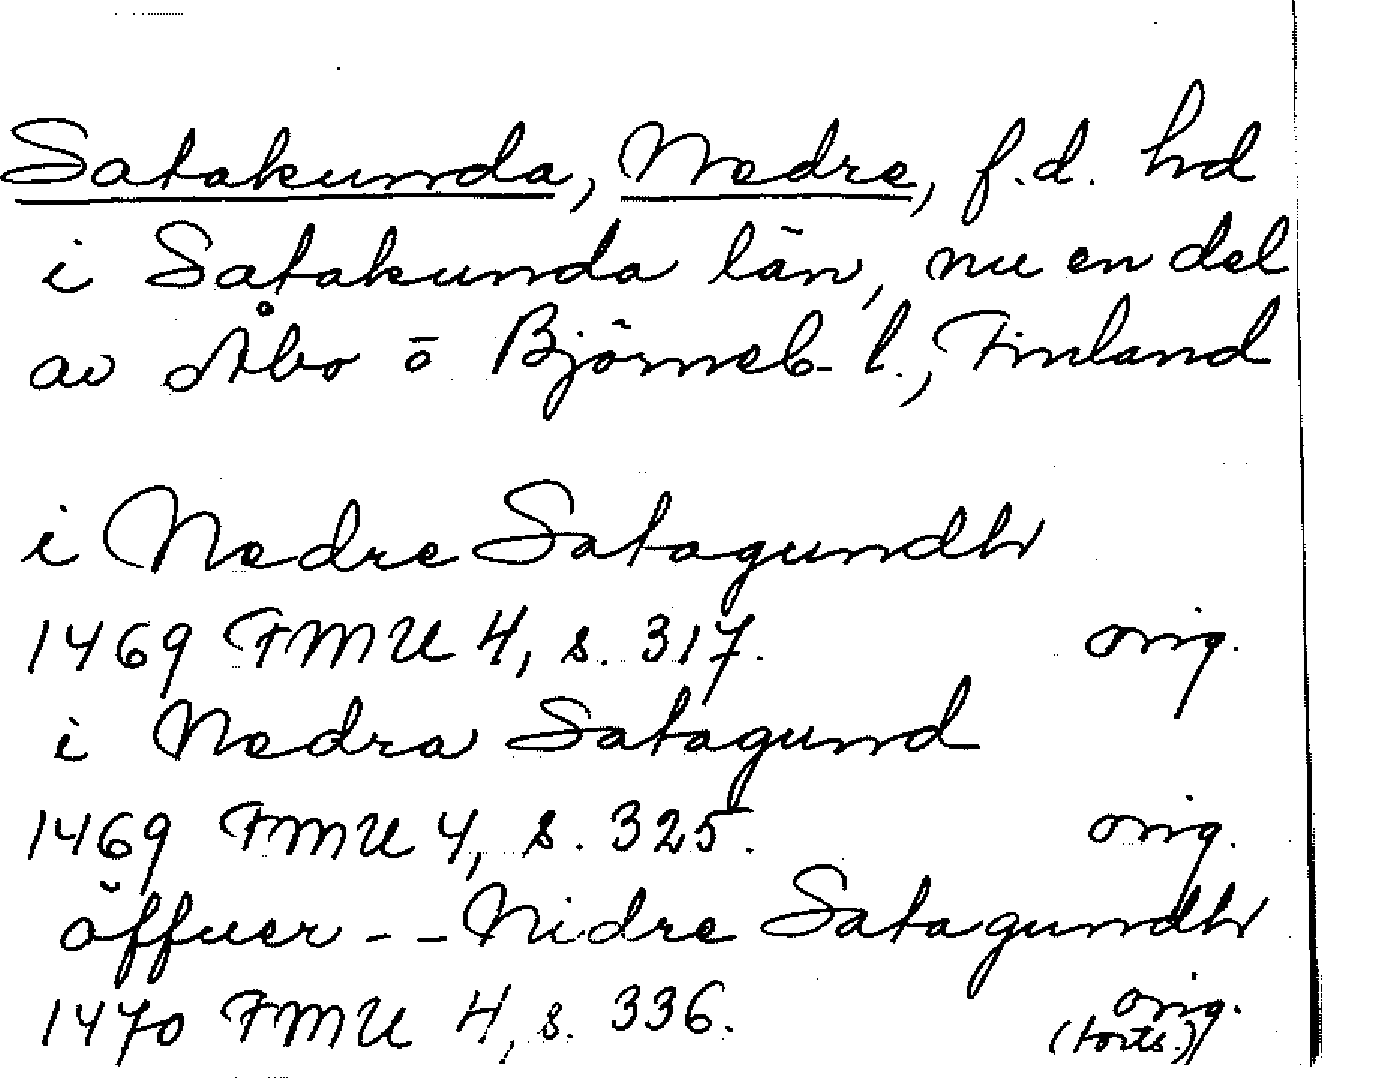 Satakunda, Nedre, f.d. hd
i Satakunda län, nu en del
av Åbo o Björneb. l., Finland
i Nedre Satagundh
1469 FMU 4, s. 317. orig.
i Nedra Satagund
1469 FMU 4, s. 325. orig.
öffuer - - Nidre Satagundh
1470 FMU 4, s. 336. orig.
(forts.)